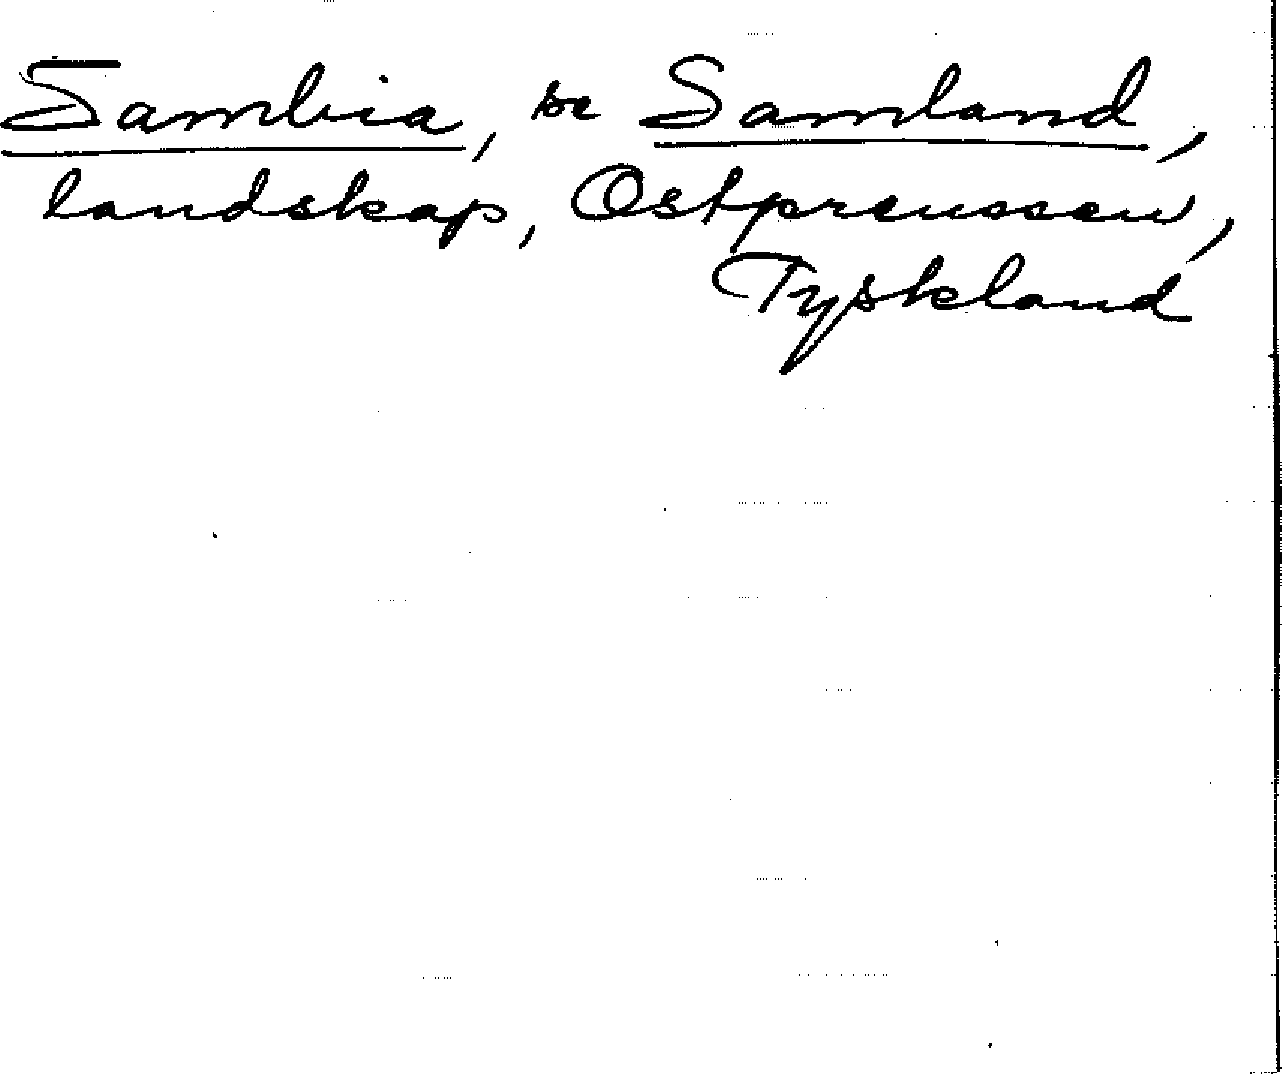 Sambia, se Samland,
landskap, Ostpreussen,
Tyskland